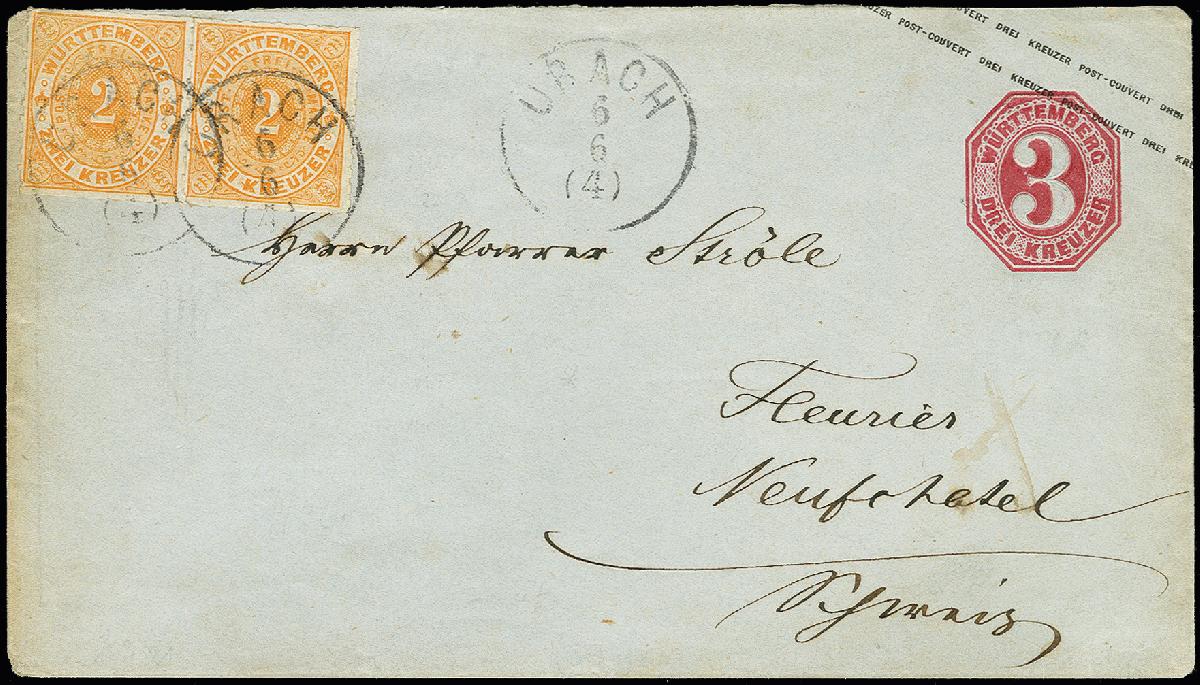 WÜRTTEMBERG
POST FREI MARKE
2
ZWEI KREUZER
WÜRTTEMBERG
2
ZWEI KREUZER
URACH
6
6
(4)
URACH
6
6
(4)
URACH
6
6
(4)
VERT DREI KREUZER POST-COUVERT DREI
UZER POST-COUVERT DREI KREUZER POST-COUVERT DREI KRE
WÜRTTEMBERG
3
DREI KREUZER
Herrn Pfarrer Ströle
Fleurier
Neufchatel
Schweiz